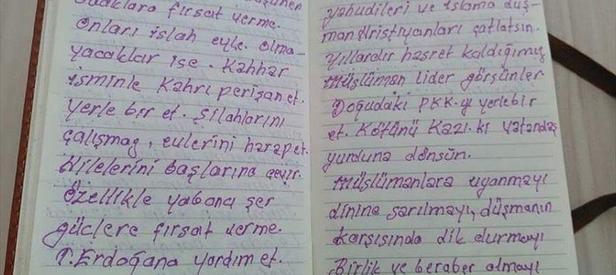 odaklara fırsat verme.
Onları islah eyle. olma-
yacaklar ise. Kahhar
isminle Kahrı perişan et.
yerle bir et. silahlarını
çalışmaz, evlerini harap et.
Hilelerini başlarına çevir.
özellikle yabancı şer
güçlere fırsat verme.
T. Erdoğana yardım et.
yahudileri ve islama düş-
man Hristiyanları çatlatsın.
Yıllardır hasret kaldığımız
Müslüman lider görsünler
Doğudaki PKK-yı yerlebir
et. Kötünü Kazı. ki vatandaş
yurduna dönsün.
Müslümanlara uyanmayı
dinine sarılmayı, düşmanın
karşısında dik durmayı
Birlik ve beraber olmayı